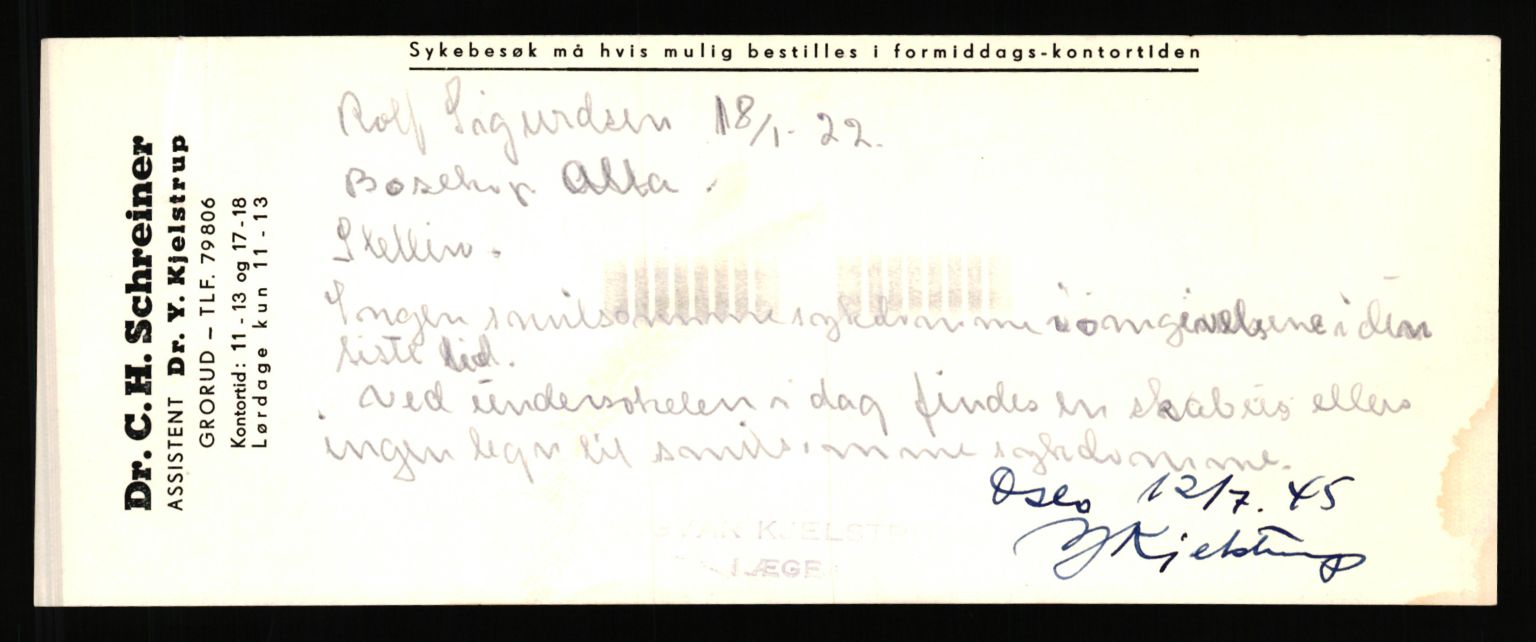 Sykebesøk må hvis mulig bestilles i formiddags-kontortiden
Dr. C. H. Schreiner
ASSISTENT Dr. Y. Kjelstrup
GRORUD – TLF. 79806
Kontortid: 11-13 og 17-18
Lørdage kun 11-13
Rolf Sigurdsen 18/1-22.
Bosekop Alta.
Ingen smitsomme sykdomme i omgivelsene i den
siste tid.
Ved undersøkelen i dag findes en skabies ellers
ingen tegn til smitsomme sykdomme.
Oslo 12/7.45
YKjelstrup
GVAR KJELSTR
LÆGE